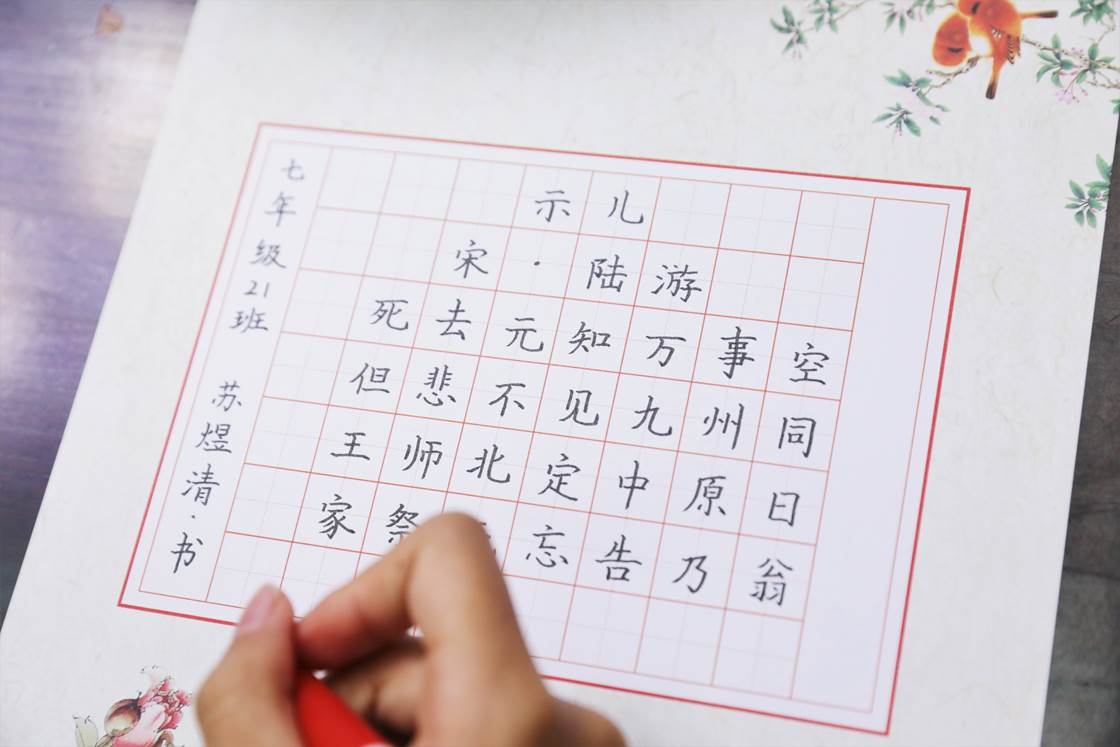 示儿
宋·陆游
死去元知万事空
但悲不见九州同
王师北定中原日
家祭忘告乃翁
七年级21班 苏煜清·书